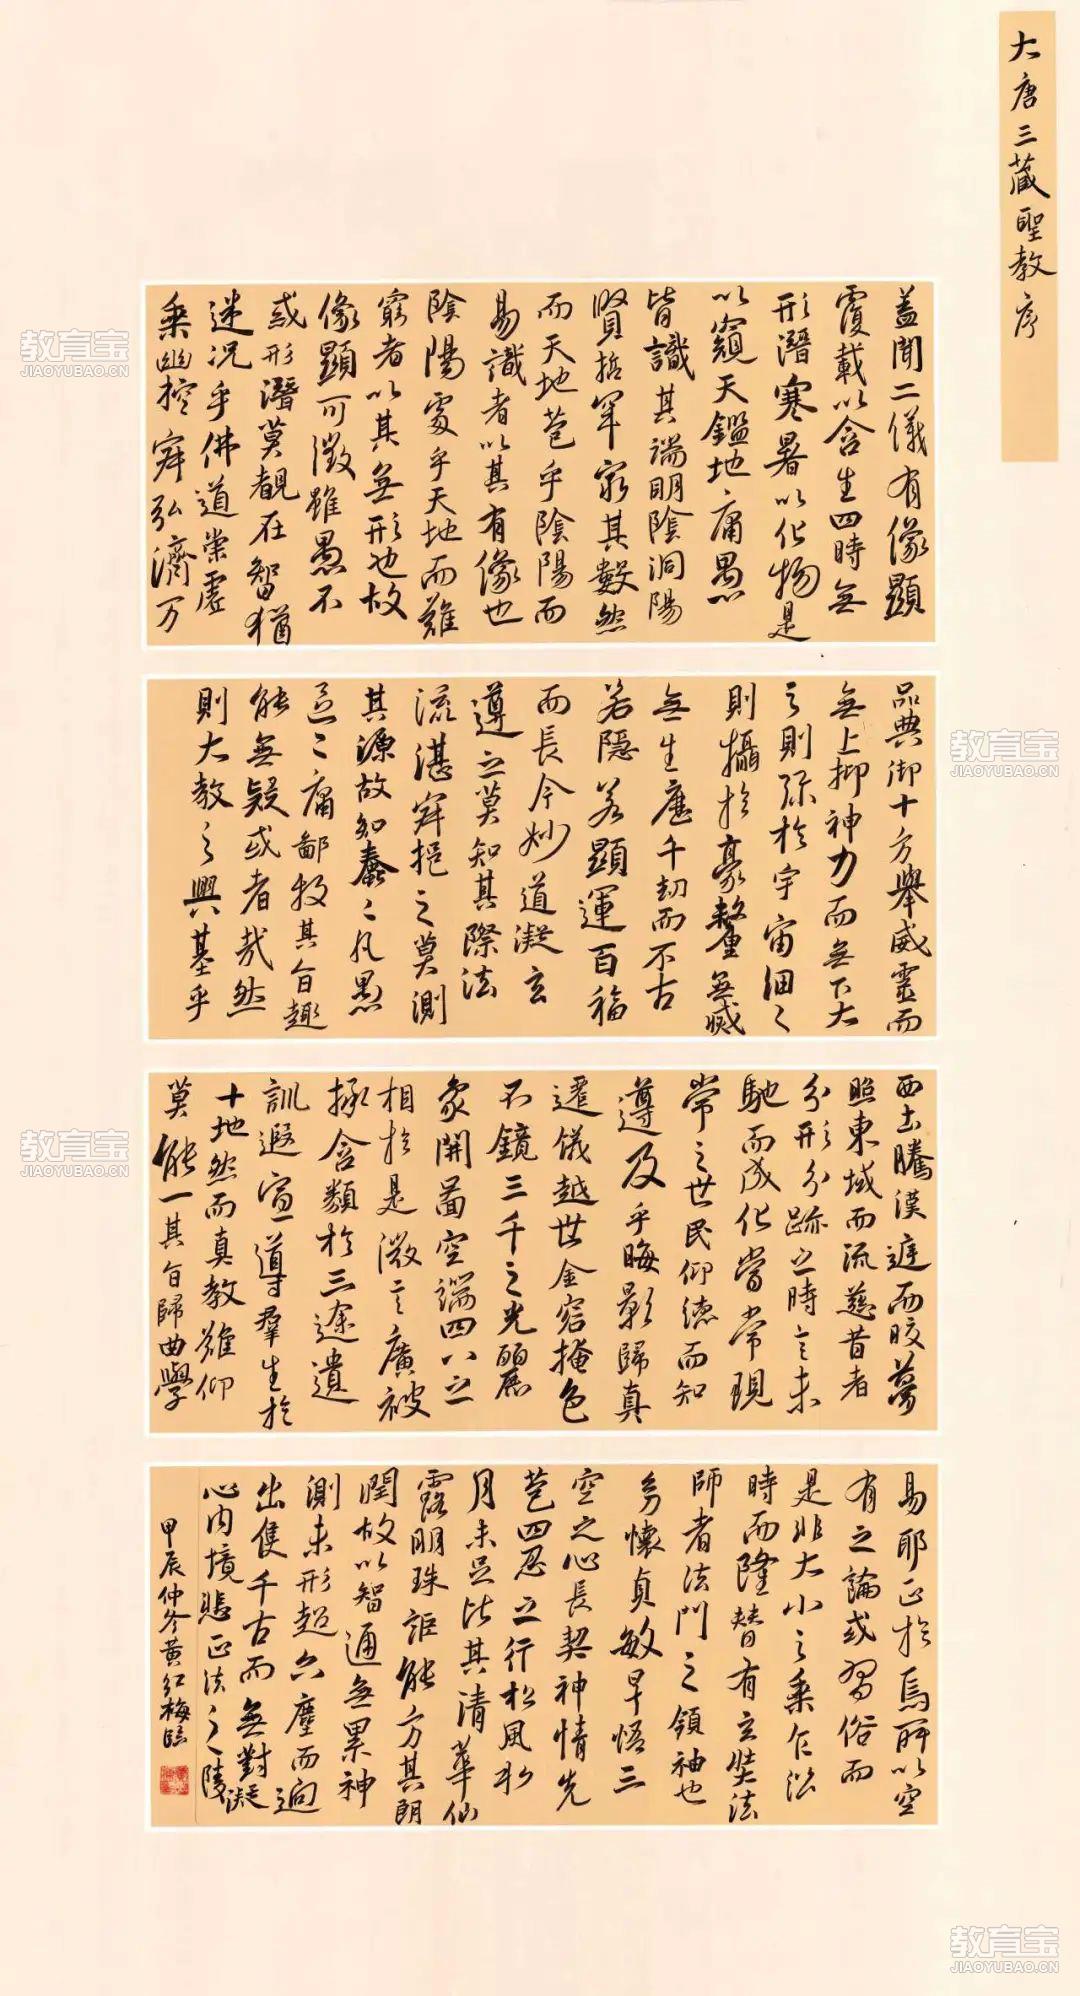 大唐三藏聖教序
蓋聞二儀有像顯
覆載以含生四時無
形潛寒暑以化物是
以窺天鑑地庸愚
皆識其端明陰洞陽
賢哲罕窮其數然
而天地苞乎陰陽而
易識者以其有像也
陰陽處乎天地而難
窮者以其無形也故
像顯可徵雖愚不
惑形潛莫覩在智猶
迷況乎佛道崇虛
乘幽控寂弘濟万
品典御十方舉威靈而
無上抑神力而無下大
之則弥於宇宙細之
則攝於豪釐無滅
無生歷千劫而不古
若隱若顯運百福
而長今妙道凝玄
遵之莫知其際法
流湛寂挹之莫測
其源故知蠢〻凡愚
區〻庸鄙投其旨趣
能無疑或者哉然
則大教之興基乎
西土騰漢庭而晈夢
照東域而流慈昔者
分形分跡之時言未
馳而成化當常現
常之世民仰德而知
遵及乎晦影歸真
遷儀越世金容掩色
不鏡三千之光麗
象開圖空端四八之
相於是微言廣被
拯含類於三途遺
訓遐宣導羣生於
十地然而真教難仰
莫能一其旨歸曲學
易耶正於焉所以空
有之論或習俗而
是非大小之乘乍沿
時而隆替有玄奘法
師者法門之領袖也
幼懷貞敏早悟三
空之心長契神情先
苞四忍之行松風水
月未足比其清華仙
露明珠詎能方其朗
潤故以智通無累神
測未形超六塵而迥
出隻千古而無對凝
心內境悲正法之陵
甲辰仲冬黄红梅臨
教育宝
JIAOYUBAO.CN
教育宝
JIAOYUBAO.CN
教育宝
JIAOYUBAO.CN
教育宝
JIAOYUBAO.CN
教育宝
JIAOYUBAO.CN